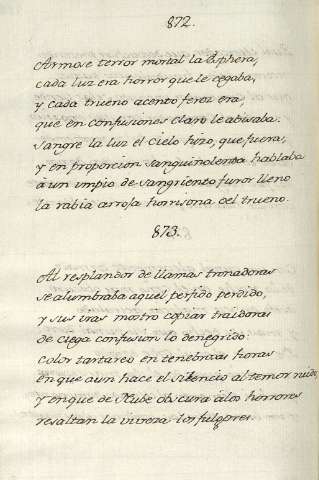 872.
Armose terror mortal la Esphera,
cada luz era horror que le cegaba,
y cada trueno acento feroz era,
que en confusiones claro le abisaba:
sangre la luz el cielo hizo, que fuera,
y en proporcion sanguinolenta hablaba
à un impio de sangriento furor lleno
la rabia arroja horrisona del trueno.
873.
Al resplandor de llamas tronadoras
se alumbraba aquel perfido perdido,
y sus iras mostrò copiar traidoras
de ciega confusion lo denegrido:
color tartareo en tenebrosas horas
en que aun hace el silencio al temor ruido,
y en que de Nube obscura à los horrores
resaltan la viveza los fulgores.